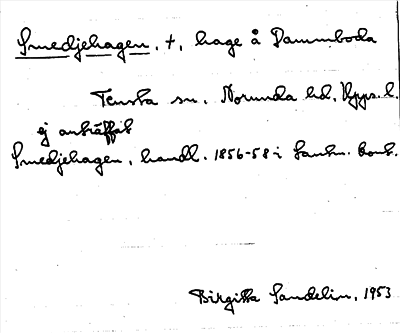 Smedjehagen, †, hage å Dammboda
Tensta sn, Norunda hd, Upps. l.
ej anträffat
Smedjehagen, handl. 1856-58 i Lantm. kont.
Birgitta Sandelin, 1953